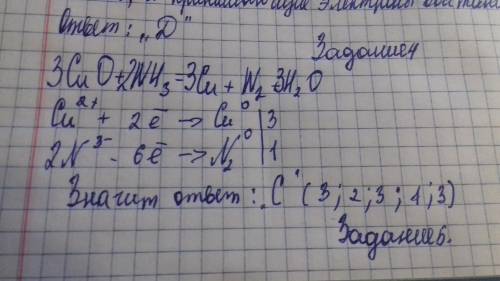 принимающие электроны восстан
Ответ: „Д"
Задание 4
3CuO+2NH3=3Cu+N2+3H2O
Cu2+ + 2ē → Cu0 | 3
2N3- - 6ē → N20 | 1
Значит ответ: „С" (3; 2; 3; 1; 3)
Задание 5.